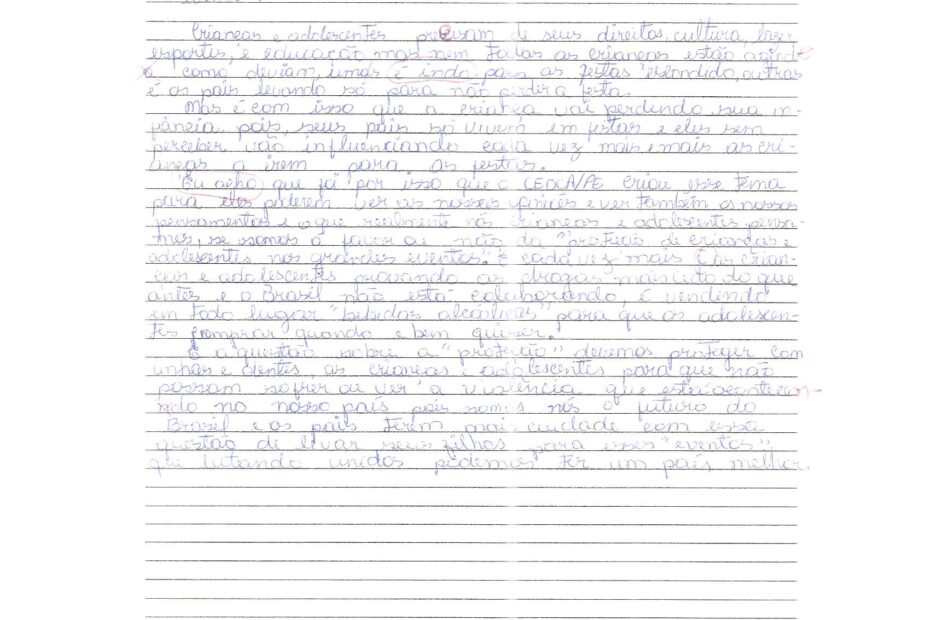 Crianças e adolescentes precisam de seus direitos, cultura, lazer
esportes, e educação mas nem todas as crianças estão agind-
o como deviam, umas é indo pais as festas escondido, outras
é os pais levando só para não perdir a festa.
Mas é com isso que a criança vai perdendo sua in-
fância pois, seus pais só vivem em festas e eles sem
perceber vão influenciando cada vez mais e mais as cri-
anças a irem para as festas.
Eu acho que já por isso que o CEDCA/PE criou esse tema
para eles poderem ver as nossas opiniões e ver também os nossos
pensamentos e o que realmente nós crianças e adolescentes pensa-
mos, se somos a favor ou não da "proteção de crianças e
adolescentes nos grandes eventos." E cada vez mais as crian-
ças e adolescentes provando as drogas mais cedo do que
antes e o Brasil não está colaborando, é vendendo
em todo lugar "bebidas alcoólicas" para que os adolescen-
tes comprar quando e bem quiser.
E a questão sobre a "proteção" devemos proteger com
unhas e dentes, as crianças e adolescentes para que não
possam sofrer ou ver a violência que está acontecen-
do no nosso país pois somos nós o futuro do
Brasil e os pais terem mais cuidade com essa
questão de levar seus filhos para esses "eventos"
que lutando unidos podemos ter um país melhor.